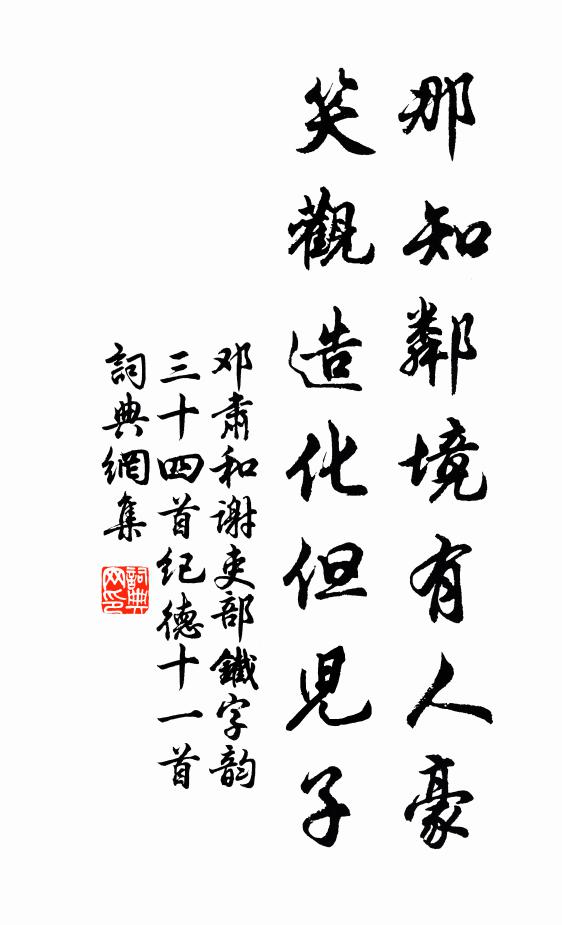 那知鄰境有人豪
笑觀造化但児子
邓肅和谢吏部鐵字韵
三十四首纪德十一首
詞典網集
詞典网印